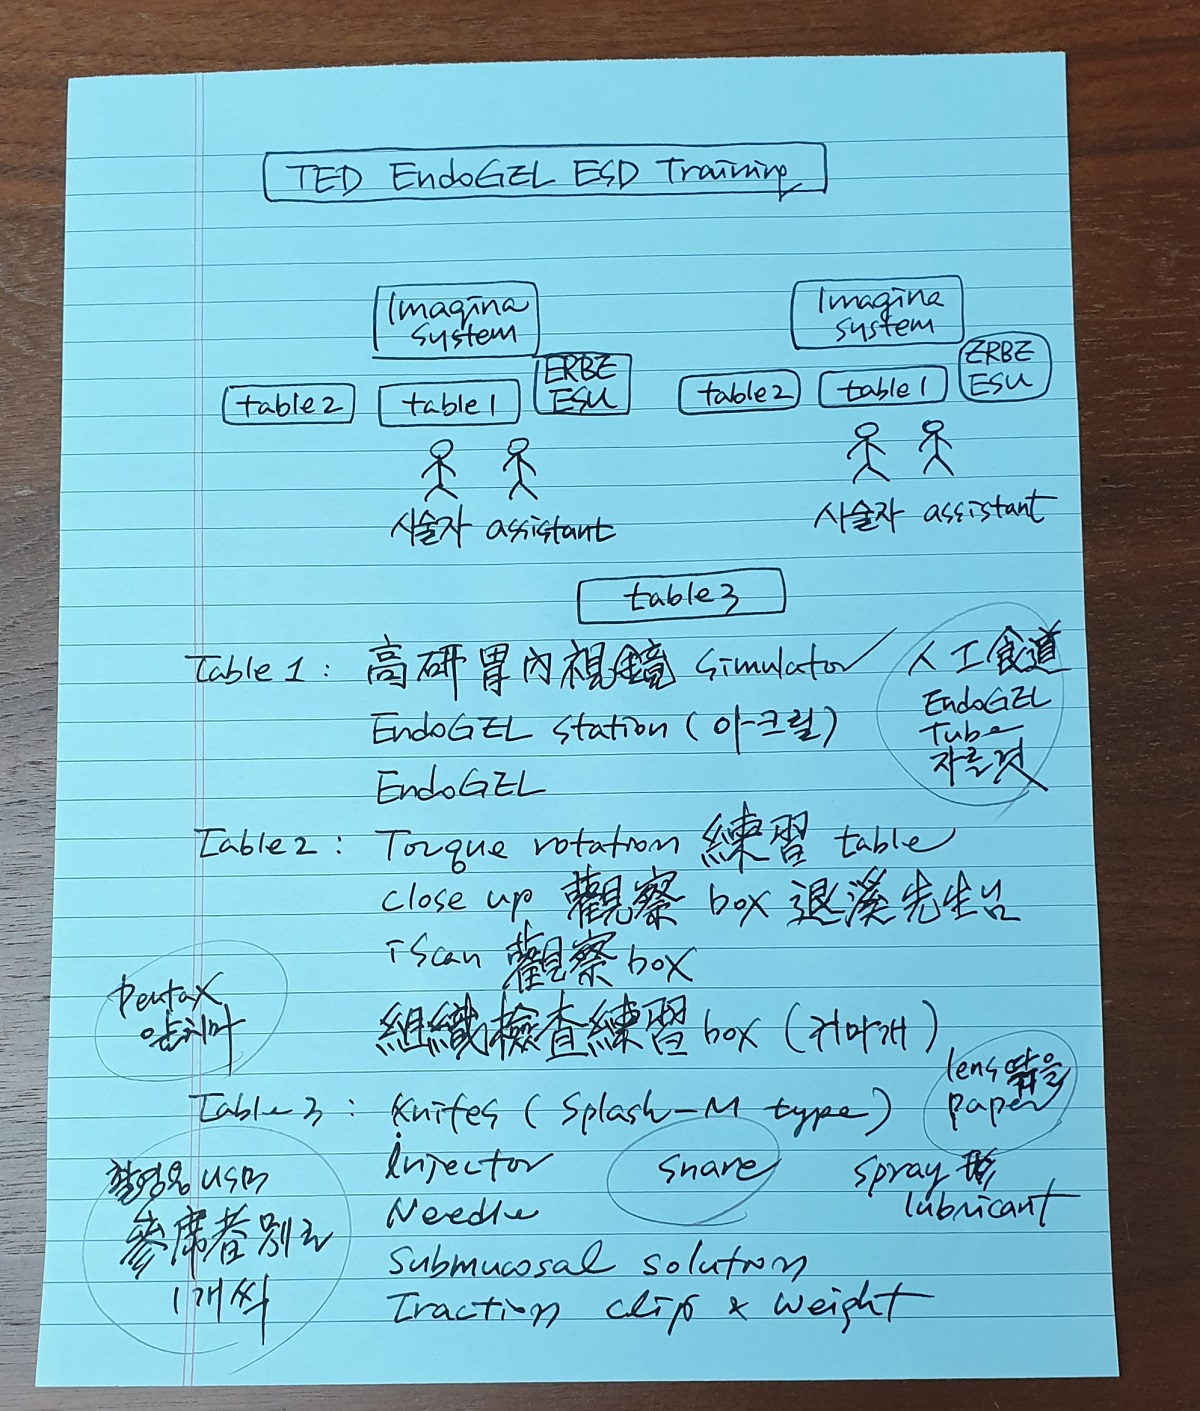 TED EndoGEL ESD Training
Imagina
system
Imagina
system
ERBE
ESU
ERBE
ESU
table2
table1
table2
table1
시술자 assistant
시술자 assistant
table3
Table 1 : 高硏 胃內視鏡 simulator
人工食道
EndoGEL
Tube
자를것
EndoGEL station (아크릴)
EndoGEL
Table 2 : Torque rotation 練習 table
close up 觀察 box 退溪先生님
iScan 觀察 box
Pentax
앞치마
組織檢査練習 box (귀마개)
lens 닦을
paper
Table 3 : Knifes (Splash-M type)
Injector
snare
spray 形
lubricant
촬영용 USB
參席者別로
1개씩
Needle
Submucosal solution
Traction clip & weight